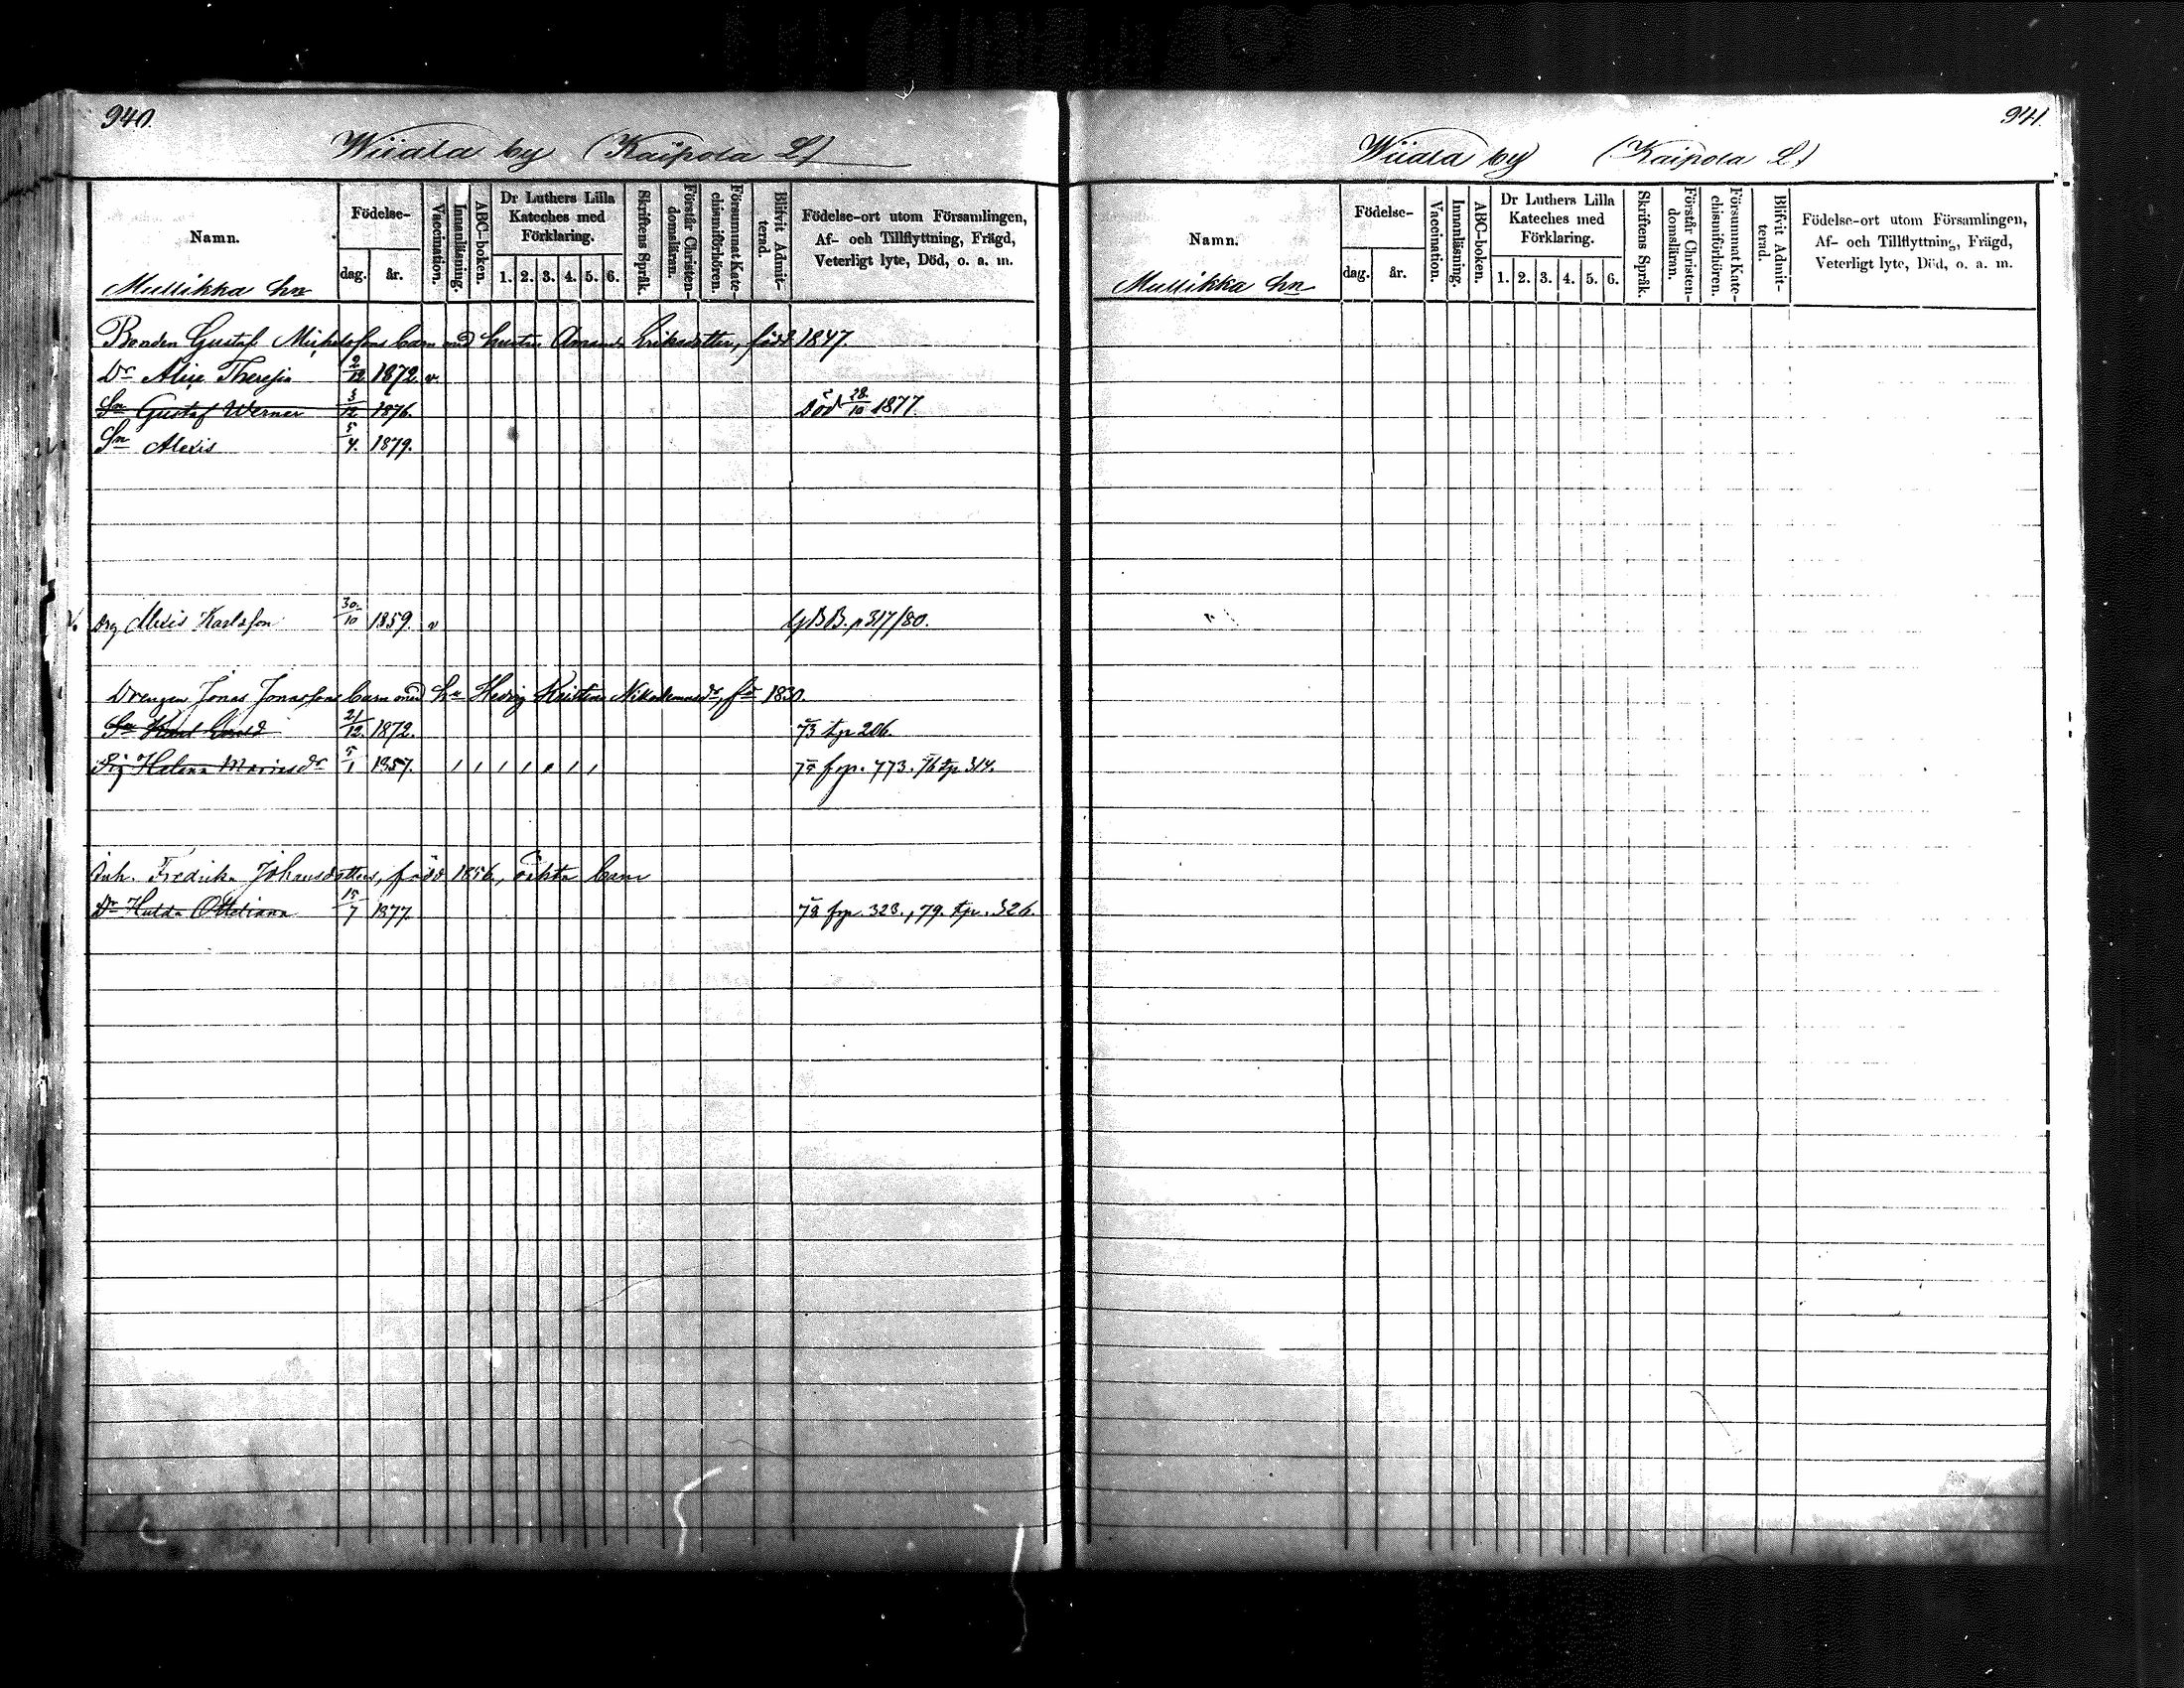 940.
Wiiala by (Kaipola L)
Namn.
Födelse-
dag. år.
Vaccination.
Innanläsning.
ABC-boken.
Dr Luthers Lilla Kateches med Förklaring.
1. 2. 3. 4. 5. 6.
Skriftens Språk.
Förstår Christen-domsläran.
Försummat Kate-chismiförhören.
Blifvit Admit-terad.
Födelse-ort utom Församlingen,
Af- och Tillflyttning, Frägd,
Veterligt lyte, Död, o. a. m.
Mullikka hn
Bonden Gustaf Michelssons barn med hustru Amanda Eriksdotter, född 1847.
Dr Alice Theresia 2/12 1872. v.
Sn Gustaf Werner 3/12 1876. Död 28/10 1877.
Sn Alexis 5/4. 1879.
Drg Alexis Karlsson 30/10 1859. v GBB. p 317/80.
Drengen Jonas Jonassons barn med hu Hedvig Kristina Nikodemusdr, fd 1830.
Sn Karl 21/12. 1872. 73 tp 206.
Pig Helena Mariesdr 5/1 1857. 75 frp. 773. 76 tp 314.
Inh. Fredrika Johansdotters, född 1856, oäkta barn
Dr Hulda Ottiliana 15/7 1877. 78 frp. 323., 79. tp. 326.
941.
Wiiala by (Kaipola L)
Namn.
Födelse-
dag. år.
Vaccination.
Innanläsning.
ABC-boken.
Dr Luthers Lilla Kateches med Förklaring.
1. 2. 3. 4. 5. 6.
Skriftens Språk.
Förstår Christen-domsläran.
Försummat Kate-chismiförhören.
Blifvit Admit-terad.
Födelse-ort utom Församlingen,
Af- och Tillflyttning, Frägd,
Veterligt lyte, Död, o. a. m.
Mullikka hn